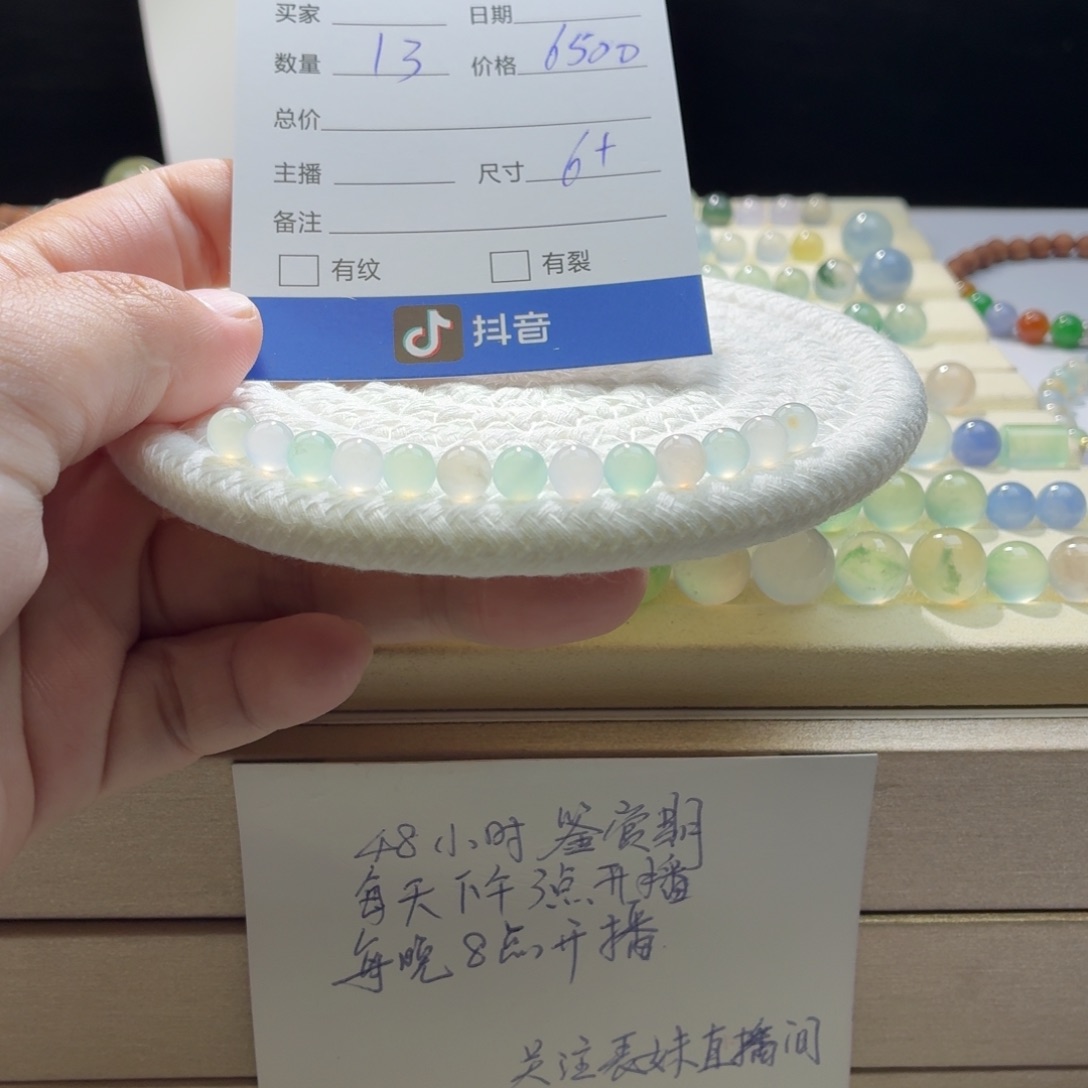 买家 日期
数量 13 价格 6500
总价
主播 尺寸 6+
备注
有纹 有裂
抖音
48小时鉴赏期
每天下午3点开播
每晚8点开播
关注表妹直播间